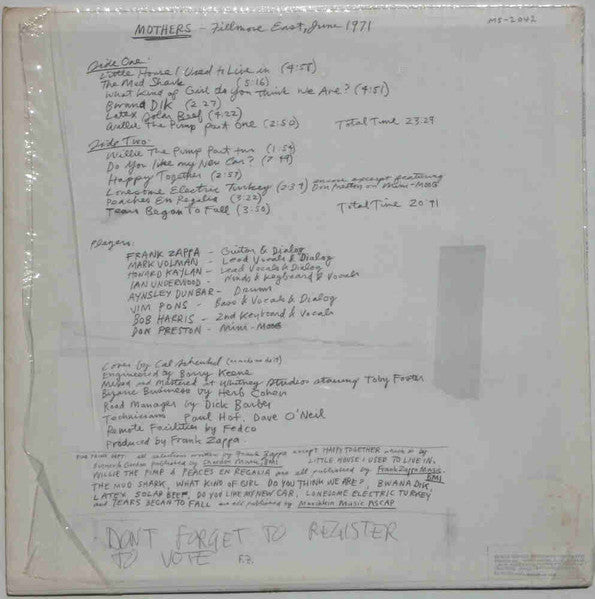 MOTHERS - Fillmore East, June 1971
MS-2042
Side One:
Little House I Used to Live in (4:58)
The Mud Shark (5:16)
What Kind of Girl do you Think We Are? (4:51)
Bwana DIK (2:27)
Latex Solar Beef (4:22)
Willie The Pump part One (2:50) Total Time 23:29
Side Two:
Willie The Pump Part two (1:54)
Do You like my New Car? (7:49)
Happy Together (2:57)
Lonesome Electric Turkey (2:34) encore except featuring Don Preston on Mini-Moog
Peaches En Regalia (3:22)
Tears Began To Fall (3:50) Total Time 20:41
Players:
FRANK ZAPPA - Guitar & Dialog
MARK VOLMAN - Lead Vocals & Dialog
HOWARD KAYLAN - Lead Vocals & Dialog
IAN UNDERWOOD - Winds & Keyboard & Vocals
AYNSLEY DUNBAR - Drums
JIM PONS - Bass & Vocals & Dialog
BOB HARRIS - 2nd Keyboard & Vocals
DON PRESTON - Mini-Moog
Cover by Cal Schenkel
Engineered by Barry Keene
Mixed and Mastered at Whitney Studios starring Toby Foster
Bizarre Business by Herb Cohen
Road Manager by Dick Barber
Technicians Paul Hof, Dave O'Neil
Remote Facilities by Fedco
Produced by Frank Zappa.
FINE PRINT DEPT. all selections written by Frank Zappa except HAPPY TOGETHER which is by
Bonner & Gordon published by Chardon Music, BMI. LITTLE HOUSE I USED TO LIVE IN,
WILLIE THE PIMP & PEACHES EN REGALIA are all published by Frank Zappa Music, BMI
THE MUD SHARK, WHAT KIND OF GIRL DO YOU THINK WE ARE?, BWANA DIK,
LATEX SOLAR BEEF, DO YOU LIKE MY NEW CAR, LONESOME ELECTRIC TURKEY
and TEARS BEGAN TO FALL are all published by Munchkin Music ASCAP
DON'T FORGET TO REGISTER
TO VOTE F.Z.